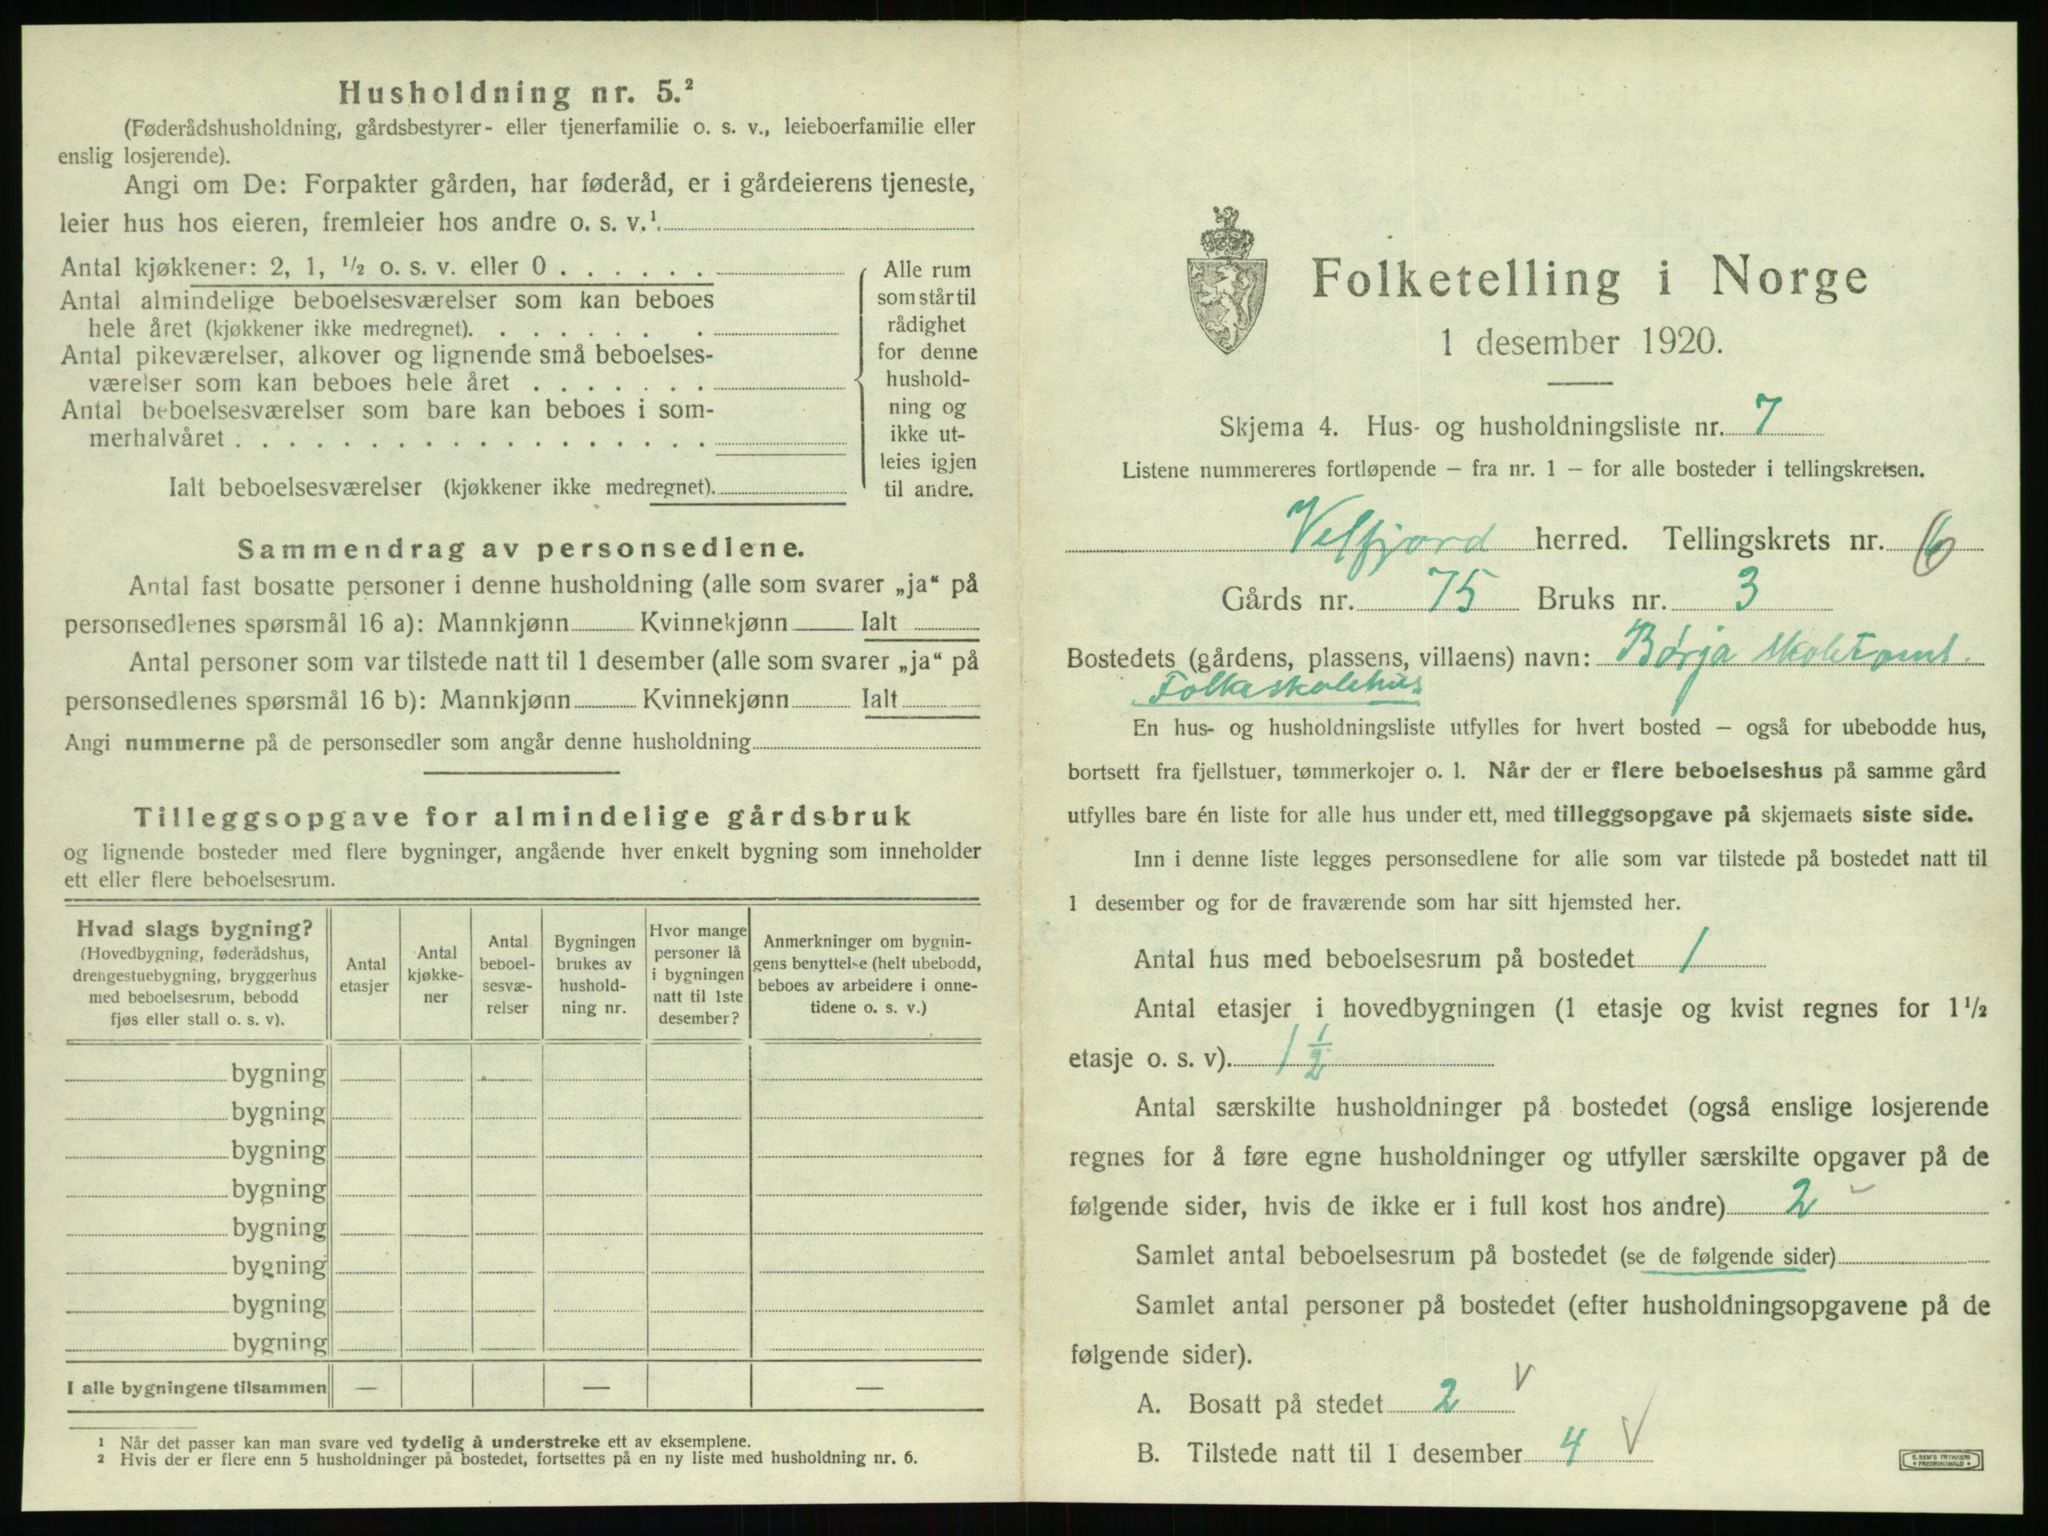 Husholdning nr. 5.²
(Føderådshusholdning, gårdsbestyrer- eller tjenerfamilie o. s. v., leieboerfamilie eller
enslig losjerende).
Angi om De: Forpakter gården, har føderåd, er i gårdeierens tjeneste,
leier hus hos eieren, fremleier hos andre o. s. v.¹.
Antal kjøkkener: 2, 1, ½ o. s. v. eller 0 . . . . . .
Antal almindelige beboelsesværelser som kan beboes
hele året (kjøkkener ikke medregnet). . . . . . . .
Antal pikeværelser, alkover og lignende små beboelses-
værelser som kan beboes hele året . . . . . . .
Antal beboelsesværelser som bare kan beboes i som-
merhalvåret . . . . . . . . . . . . . . . . . .
Ialt beboelsesværelser (kjøkkener ikke medregnet).
Alle rum
som står til
rådighet
for denne
hushold-
ning og
ikke ut-
leies igjen
til andre.
Sammendrag av personsedlene.
Antal fast bosatte personer i denne husholdning (alle som svarer „ja“ på
personsedlenes spørsmål 16 a): Mannkjønn Kvinnekjønn Ialt
Antal personer som var tilstede natt til 1 desember (alle som svarer „ja“ på
personsedlenes spørsmål 16 b): Mannkjønn Kvinnekjønn Ialt
Angi nummerne på de personsedler som angår denne husholdning
Tilleggsopgave for almindelige gårdsbruk
og lignende bosteder med flere bygninger, angående hver enkelt bygning som inneholder
ett eller flere beboelsesrum.
Hvad slags bygning?
(Hovedbygning, føderådshus,
drengestuebygning, bryggerhus
med beboelsesrum, bebodd
fjøs eller stall o. s. v).
Antal
etasjer
Antal
kjøkke-
ner
Antal
beboel-
sesvæ-
relser
Bygningen
brukes av
hushold-
ning nr.
Hvor mange
personer lå
i bygningen
natt til 1ste
desember?
Anmerkninger om bygnin-
gens benyttelse (helt ubebodd,
beboes av arbeidere i onne-
tidene o. s. v.)
bygning
bygning
bygning
bygning
bygning
bygning
bygning
bygning
I alle bygningene tilsammen — — —
¹ Når det passer kan man svare ved tydelig å understreke ett av eksemplene.
² Hvis der er flere enn 5 husholdninger på bostedet, fortsettes på en ny liste med husholdning nr. 6.
Folketelling i Norge
1 desember 1920.
Skjema 4. Hus- og husholdningsliste nr. 7
Listene nummereres fortløpende – fra nr. 1 – for alle bosteder i tellingskretsen.
Velfjord herred. Tellingskrets nr. 6
Gårds nr. 75 Bruks nr. 3
Bostedets (gårdens, plassens, villaens) navn: Børja skoletomt.
Folkeskolehus
En hus- og husholdningsliste utfylles for hvert bosted – også for ubebodde hus,
bortsett fra fjellstuer, tømmerkojer o. l. Når der er flere beboelseshus på samme gård
utfylles bare én liste for alle hus under ett, med tilleggsopgave på skjemaets siste side.
Inn i denne liste legges personsedlene for alle som var tilstede på bostedet natt til
1 desember og for de fraværende som har sitt hjemsted her.
Antal hus med beboelsesrum på bostedet 1
Antal etasjer i hovedbygningen (1 etasje og kvist regnes for 1½
etasje o. s. v). 1 ½
Antal særskilte husholdninger på bostedet (også enslige losjerende
regnes for å føre egne husholdninger og utfyller særskilte opgaver på de
følgende sider, hvis de ikke er i full kost hos andre) 2
Samlet antal beboelsesrum på bostedet (se de følgende sider)
Samlet antal personer på bostedet (efter husholdningsopgavene på de
følgende sider).
A. Bosatt på stedet 2 V
B. Tilstede natt til 1 desember 4 V